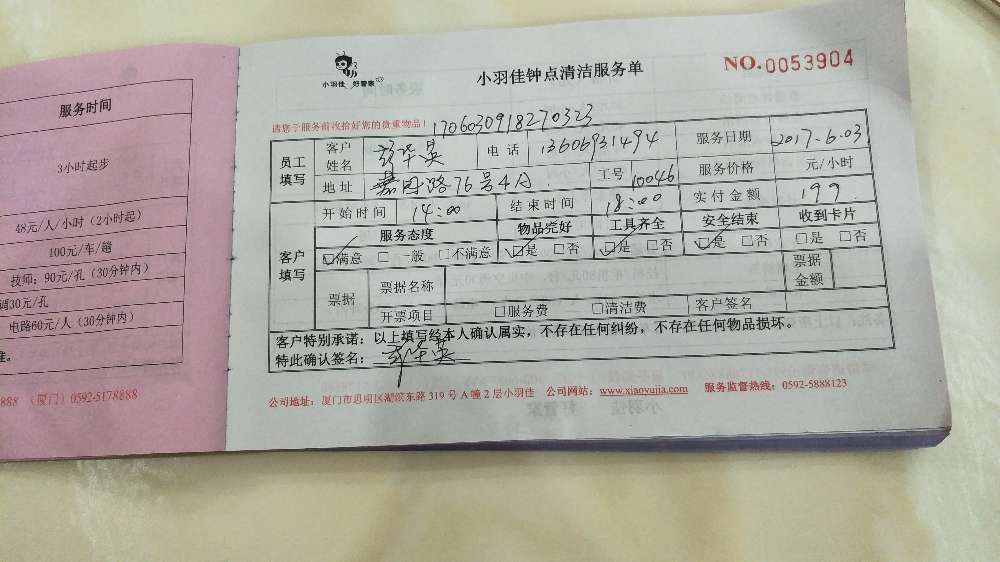 服务时间
3小时起步
48元/人/小时（2小时起）
100元/车/趟
技师：90元/孔（30分钟内）
调30元/孔
电路60元/人（30分钟内）
准。
888 （厦门）0592-5178888
小羽佳 好管家
小羽佳钟点清洁服务单
NO.0053904
请您于服务前收拾好您的贵重物品！ 1706030918270323
员工填写 客户姓名 华英 电话 13606931494 服务日期 2017-6-03
地址 路76号4 工号 10046 服务价格 元/小时
开始时间 14:00 结束时间 18:00 实付金额 199
客户填写 服务态度 物品完好 工具齐全 安全结束 收到卡片
☑满意 □一般 □不满意 ☑是 □否 ☑是 □否 ☑是 □否 □是 □否
票据 票据名称 票据金额
开票项目 □服务费 □清洁费 客户签名
客户特别承诺：以上填写经本人确认属实，不存在任何纠纷，不存在任何物品损坏。
特此确认签名： 华英
公司地址：厦门市思明区湖滨东路319号A幢2层小羽佳 公司网站：www.xiaoyujia.com 服务监督热线：0592-5888123